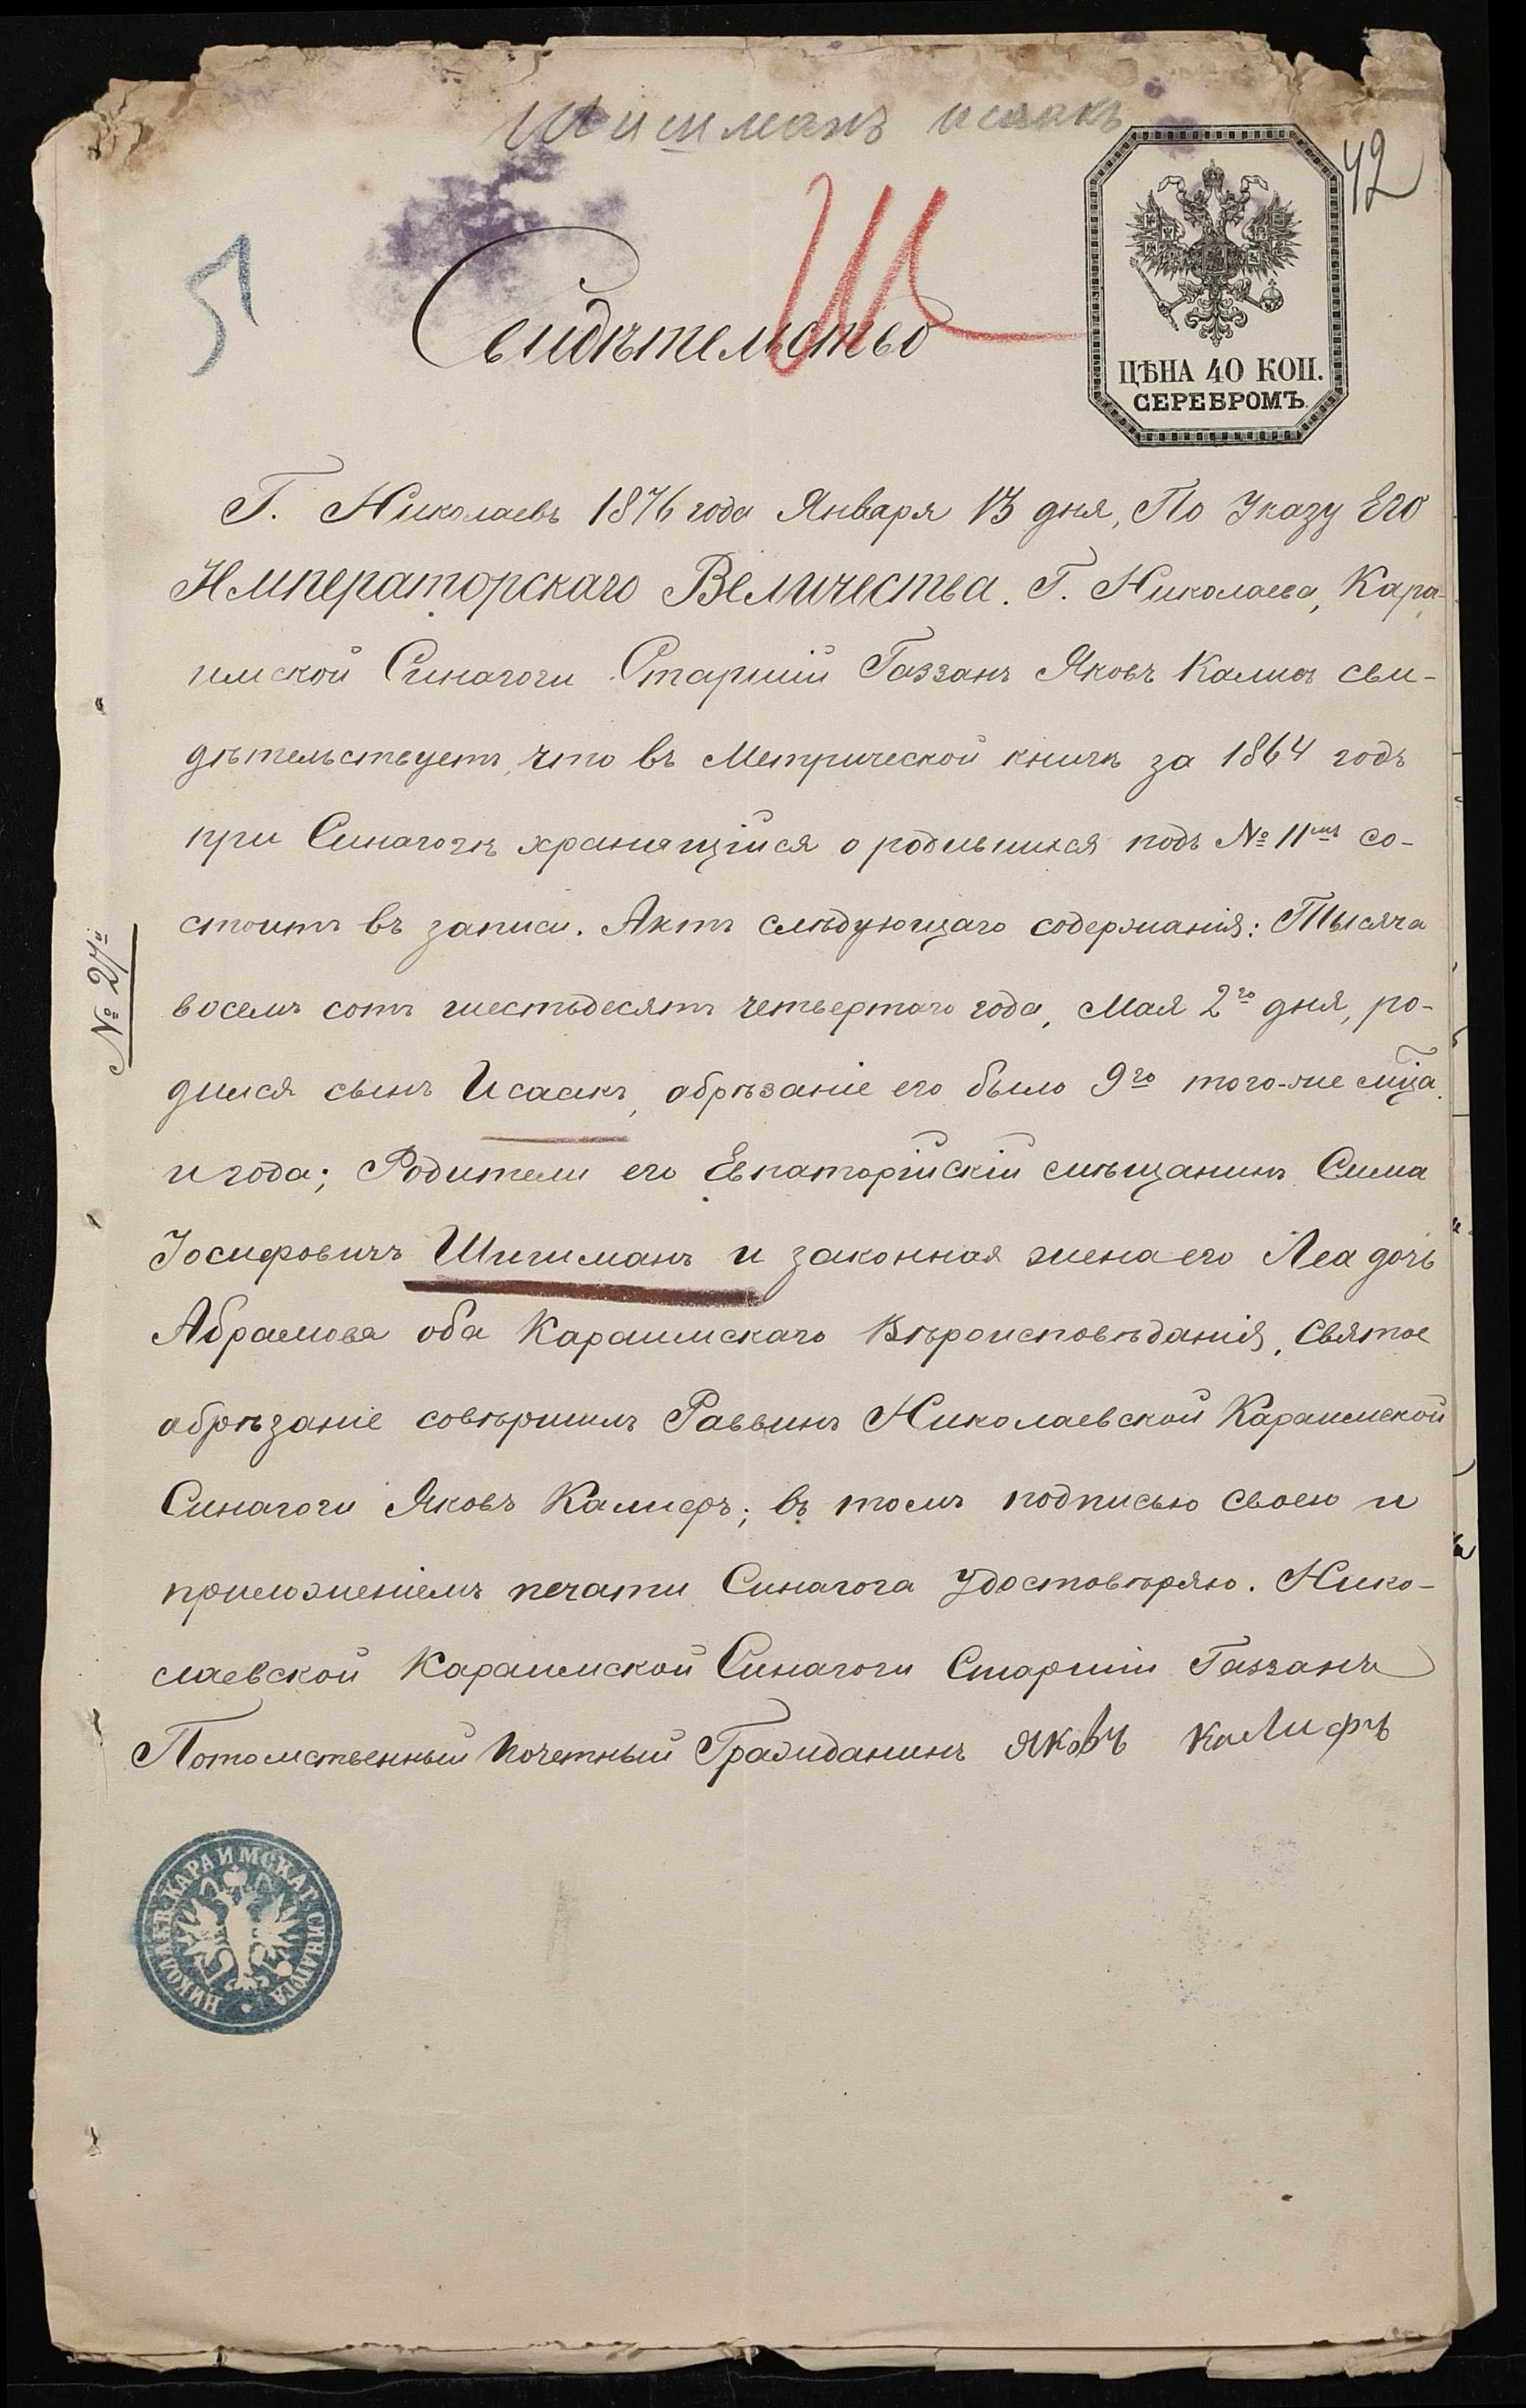 Шишманъ Исаакъ
42
51
Ш
Свидѣтельство
ЦѢНА 40 КОП.
СЕРЕБРОМЪ.
Г. Николаевъ 1876 года Января 13 дня, По Указу Его
Императорскаго Величества. Г. Николаева, Кара-
имской Синагоги Старшій Газзанъ Яковъ Калифъ сви-
дѣтельствуетъ, что въ Метрической книгѣ за 1864 годъ
при Синагогѣ хранящійся о родившихся подъ № 11мъ со-
стоитъ въ записи. Актъ слѣдующаго содержанія: Тысяча
восемъ сотъ шестьдесятъ четвертаго года, Мая 2го дня, ро-
дился сынъ Исаакъ, обрѣзаніе его было 9го того-же мѣца
и года; Родители его Евпаторійскій мѣщанинъ Сима
Іосифовичъ Шишманъ и законная жена его Леа дочь
Абрамова оба Караимскаго Вѣроисповѣданія, Святое
обрѣзаніе совѣршилъ Раввинъ Николаевской Караимской
Синагоги Яковъ Калифъ; въ томъ подписью своею и
приложеніемъ печати Синагога удостовѣряю. Нико-
лаевской Караимской Синагоги Старшій Газзанъ
Потомственный Почетный Гражданинъ Яковъ Калифъ
№ 27й
НИКОЛАЕВ. КАРАИМСКАЯ СИНАГОГА